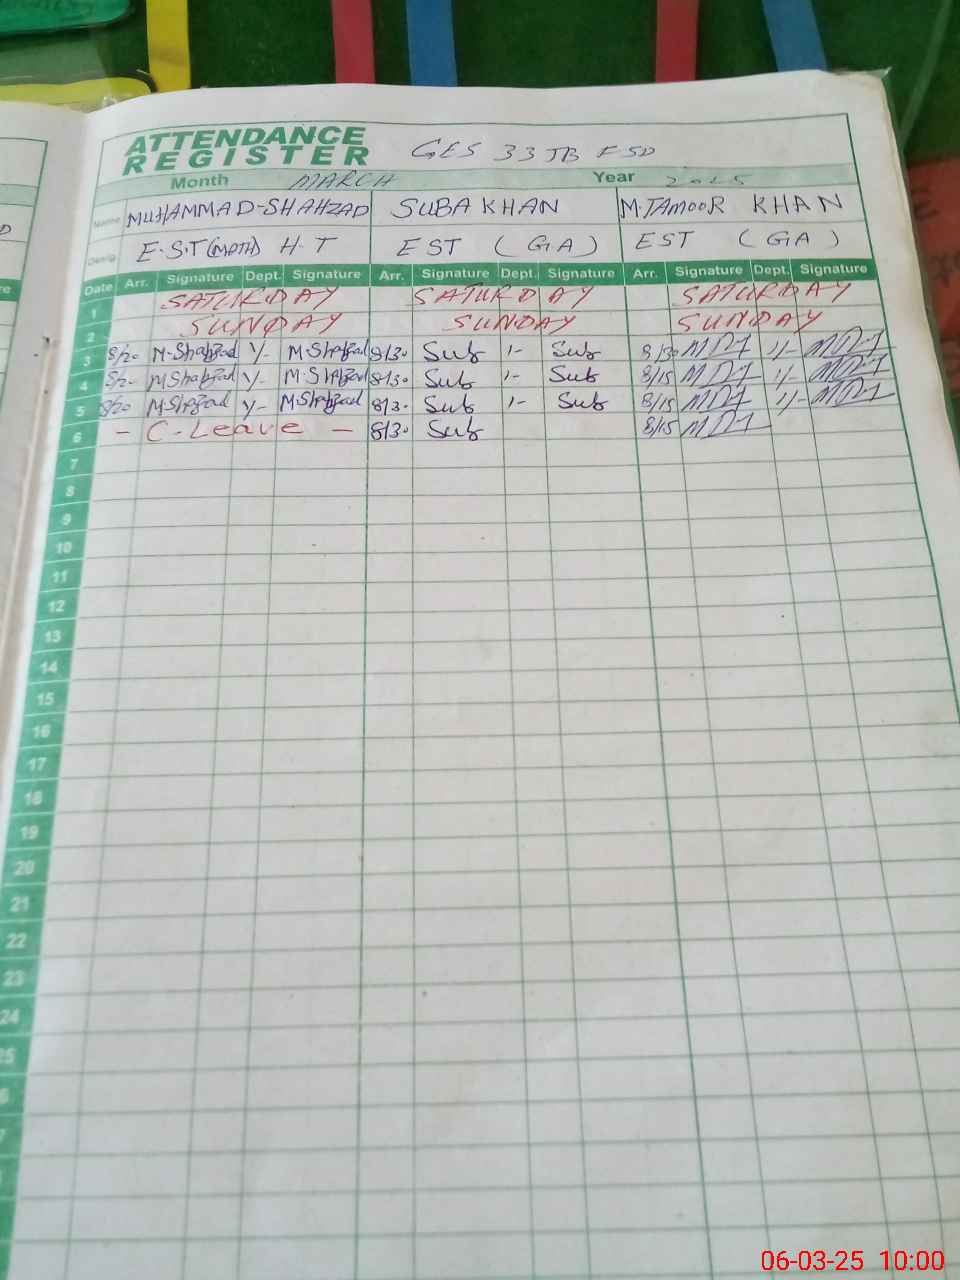 ATTENDANCE
REGISTER GES 33 JB FSD
Month MARCH Year 2025
Name MUHAMMAD-SHAHZAD SUBA KHAN M.TAMOOR KHAN
Desig. E.S.T (MATH) H.T EST (GA) EST (GA)
Date Arr. Signature Dept. Signature Arr. Signature Dept. Signature Arr. Signature Dept. Signature
1 SATURDAY SATURDAY SATURDAY
2 SUNDAY SUNDAY SUNDAY
3 8/20 M.Shahzad 1/- M.Shahzad 8/30 Sub 1- Sub 8/30 1/-
4 8/20 M.Shahzad 1/- M.Shahzad 8/30 Sub 1- Sub 8/15 1/-
5 8/20 M.Shahzad 1/- M.Shahzad 8/30 Sub 1- Sub 8/15 1/-
6 - C-Leave - 8/30 Sub 8/15
7
8
9
10
11
12
13
14
15
16
17
18
19
20
21
22
23
24
06-03-25 10:00